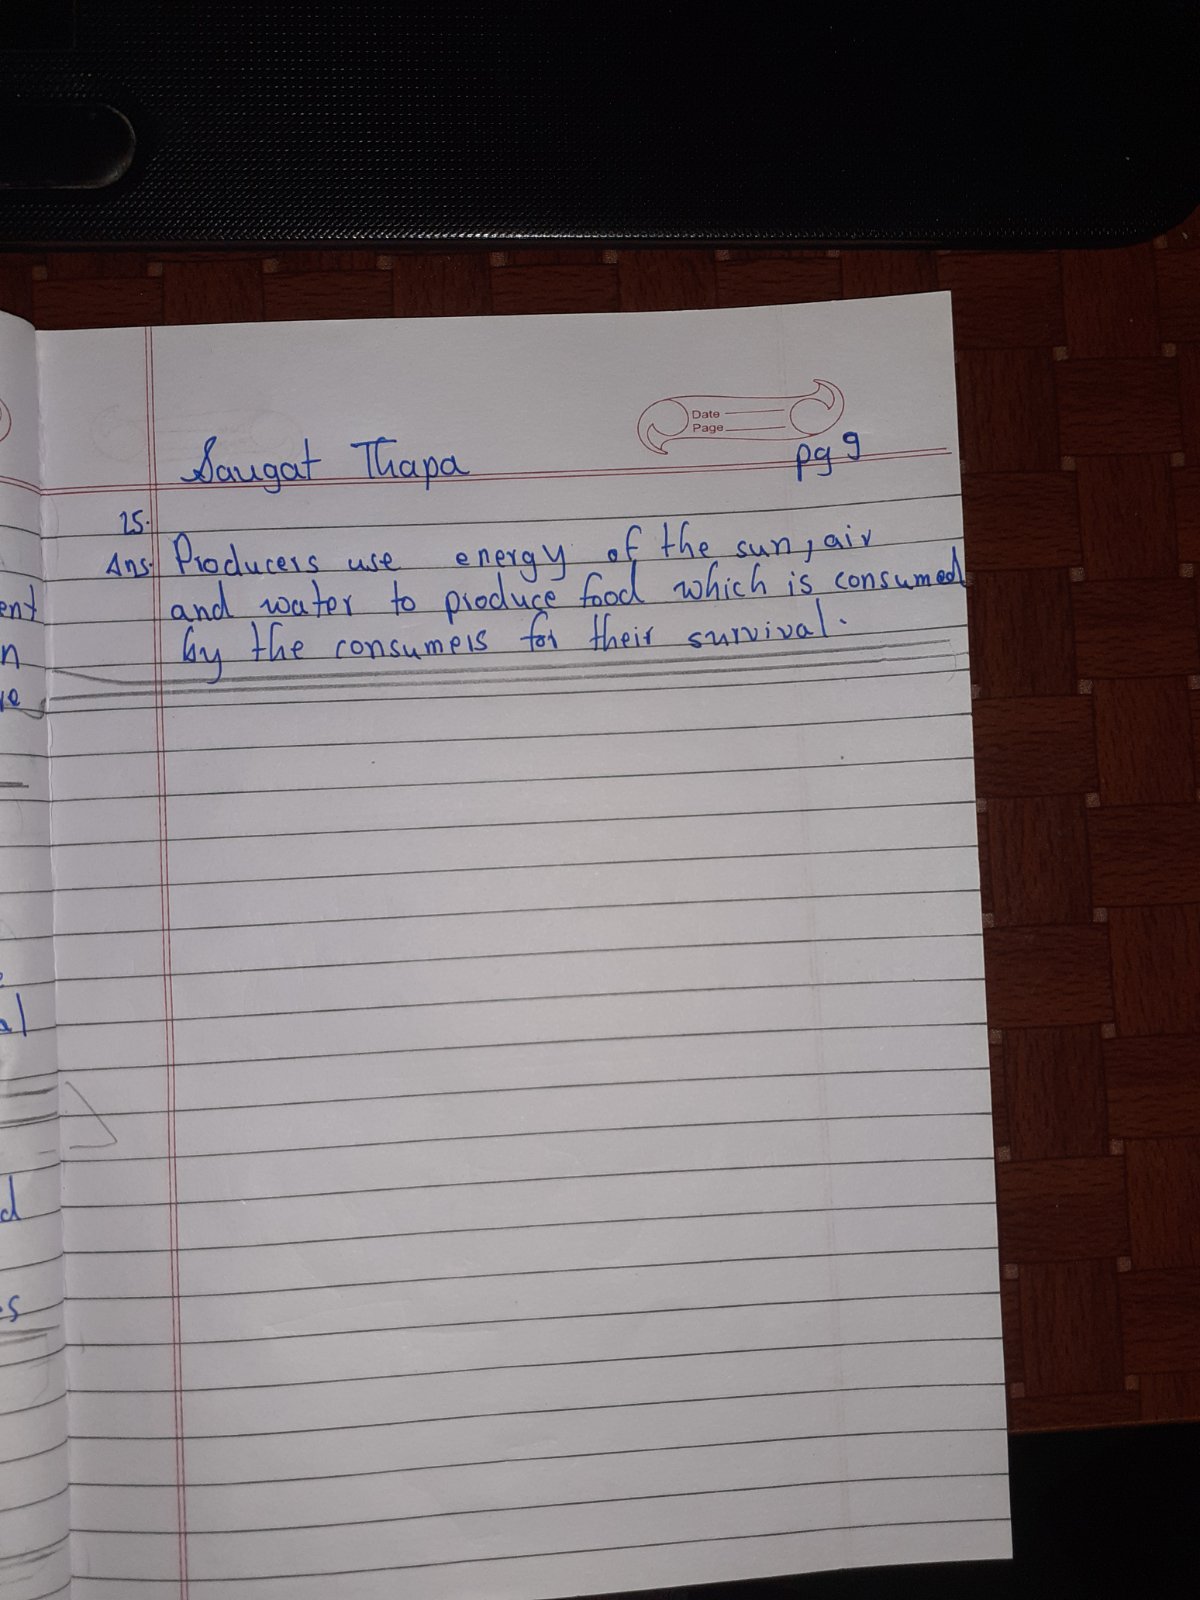 Date
Page
Saugat Thapa
pg 9
25.
Ans. Producers use energy of the sun, air
and water to produce food which is consumed
by the consumers for their survival.
ent
n
al
d
es